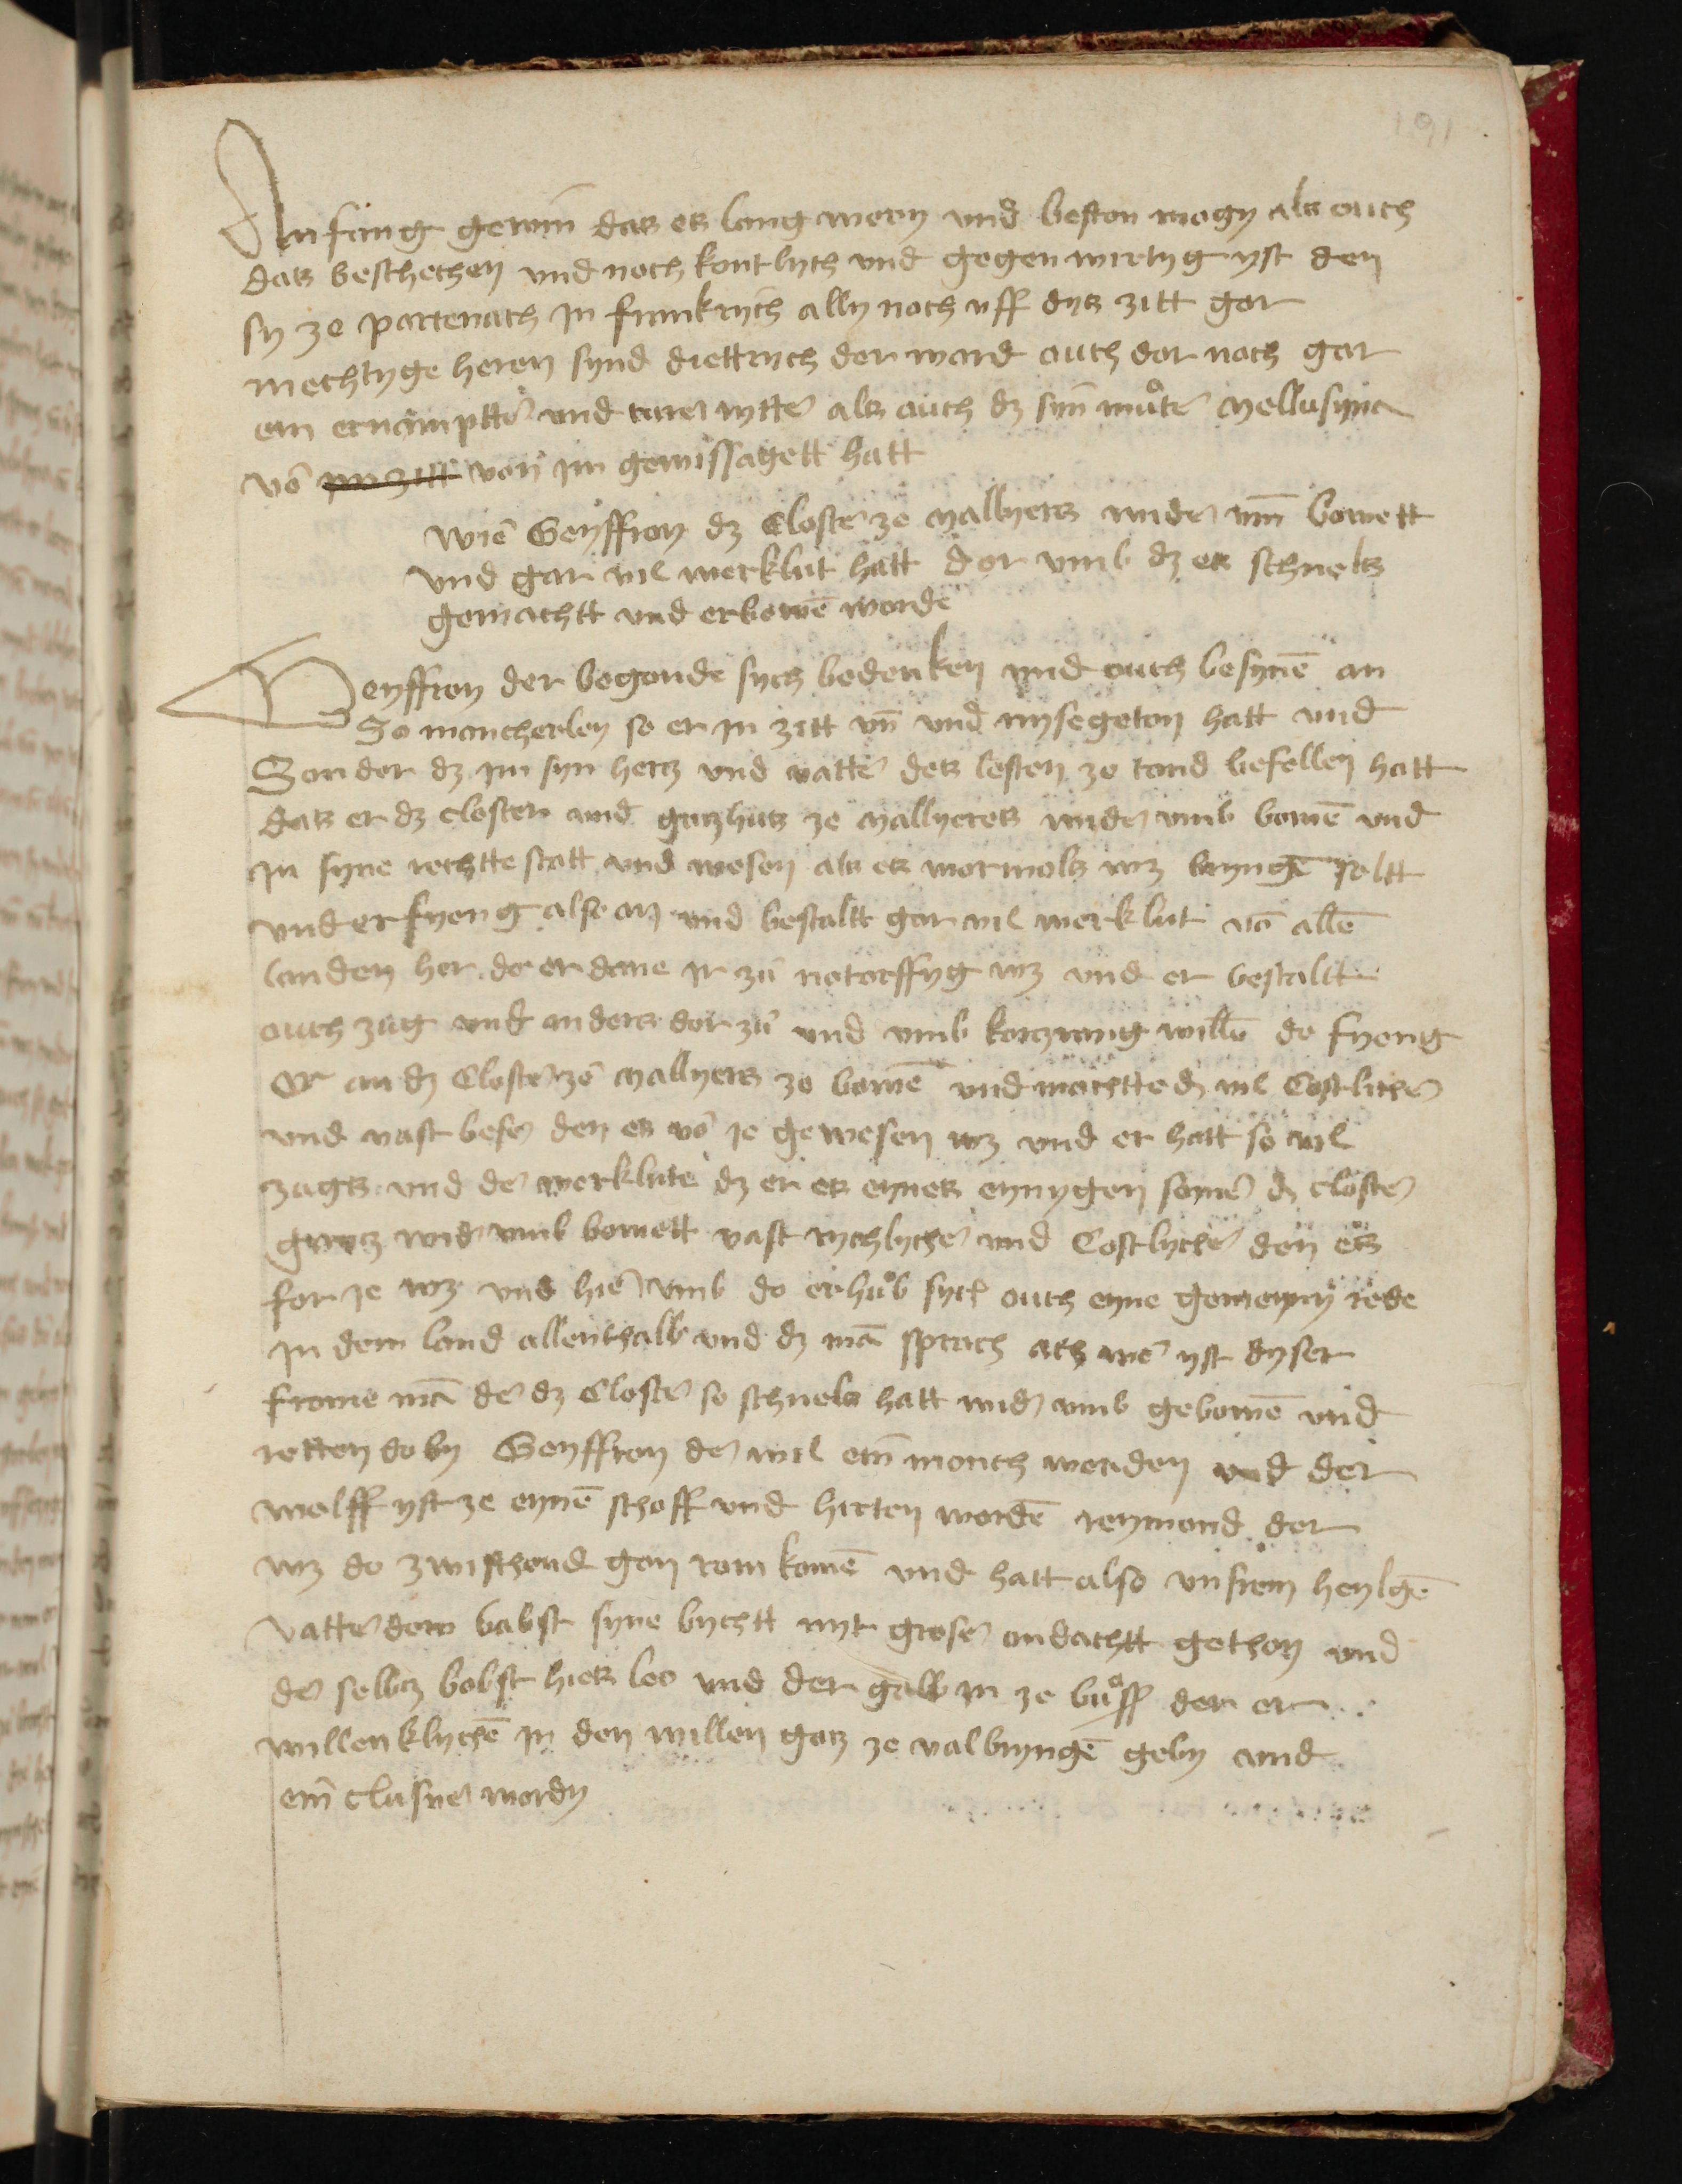 191
Anfang gewin das es lang wery und beston mogy als ouch
das beschechen und noch kontlych und gegen wirtyg yst den
sy ze portenach in frankrych ally noch uff dys zitt gar
mechtyge heren synd diettrych der ward ouch dor noch gar
ein ernampttē und turē rytte als ouch dz syn můte mellusyna
vō von im gewissagett hatt
wie Geyffroy dz Closte ze mallyers wide um bowett
und gar vil werklut hatt dor umb dz es schnels
gemachtt und erbowē worde
Geyffroy der begonde sych bedenken und ouch besynē an
So mancherley so er in zitt vn und mysegeton hatt und
Sonder dz im syn herz und vatte des lesten ze land befollen hatt
das er dz closter und gotzhus ze mallyeres wide umb bowē und
in syne rechtte statt und wesen als es wormols wz bryngē soltt
und er fyeng also an und bestaltt gar vil werklut vō allē
landen her do er dane ir zů notorffyg wz und er bestaltt
ouch zug und anders dor zů und umb korzrung willē do fyeng
Er an dz Closte ze mallyers ze bowē und machtte dz vil Costliche
und vast beser den es vō ie gewesen wz und er hatt so vil
zugs und de werklute dz er es eynes eynygen somē dz closte
gantz wide umb bowett vast rychlyche und Costlyche den es
for ie wz und hie umb do erhůb sych ouch eyne gemeyny rede
in dem land allenthalb und dz mā sprach ach wē yst dyser
frome mā de dz Closte so schnels hatt wide umb gebowē und
retten do by Geyffroy de wil ein monch werden und der
wolff yst ze eynē schoff und hirten wordē reymond der
wz do zwischend gon rom komē und hatt also unsrem heylgē
vatte dem babst syne bychtt myt grose andachtt gethon und
de selbz bobst hies leo und der gab im ze bůss den er
willenklychē in den willen gotz ze volbryngē geby und
ein clusne wordy